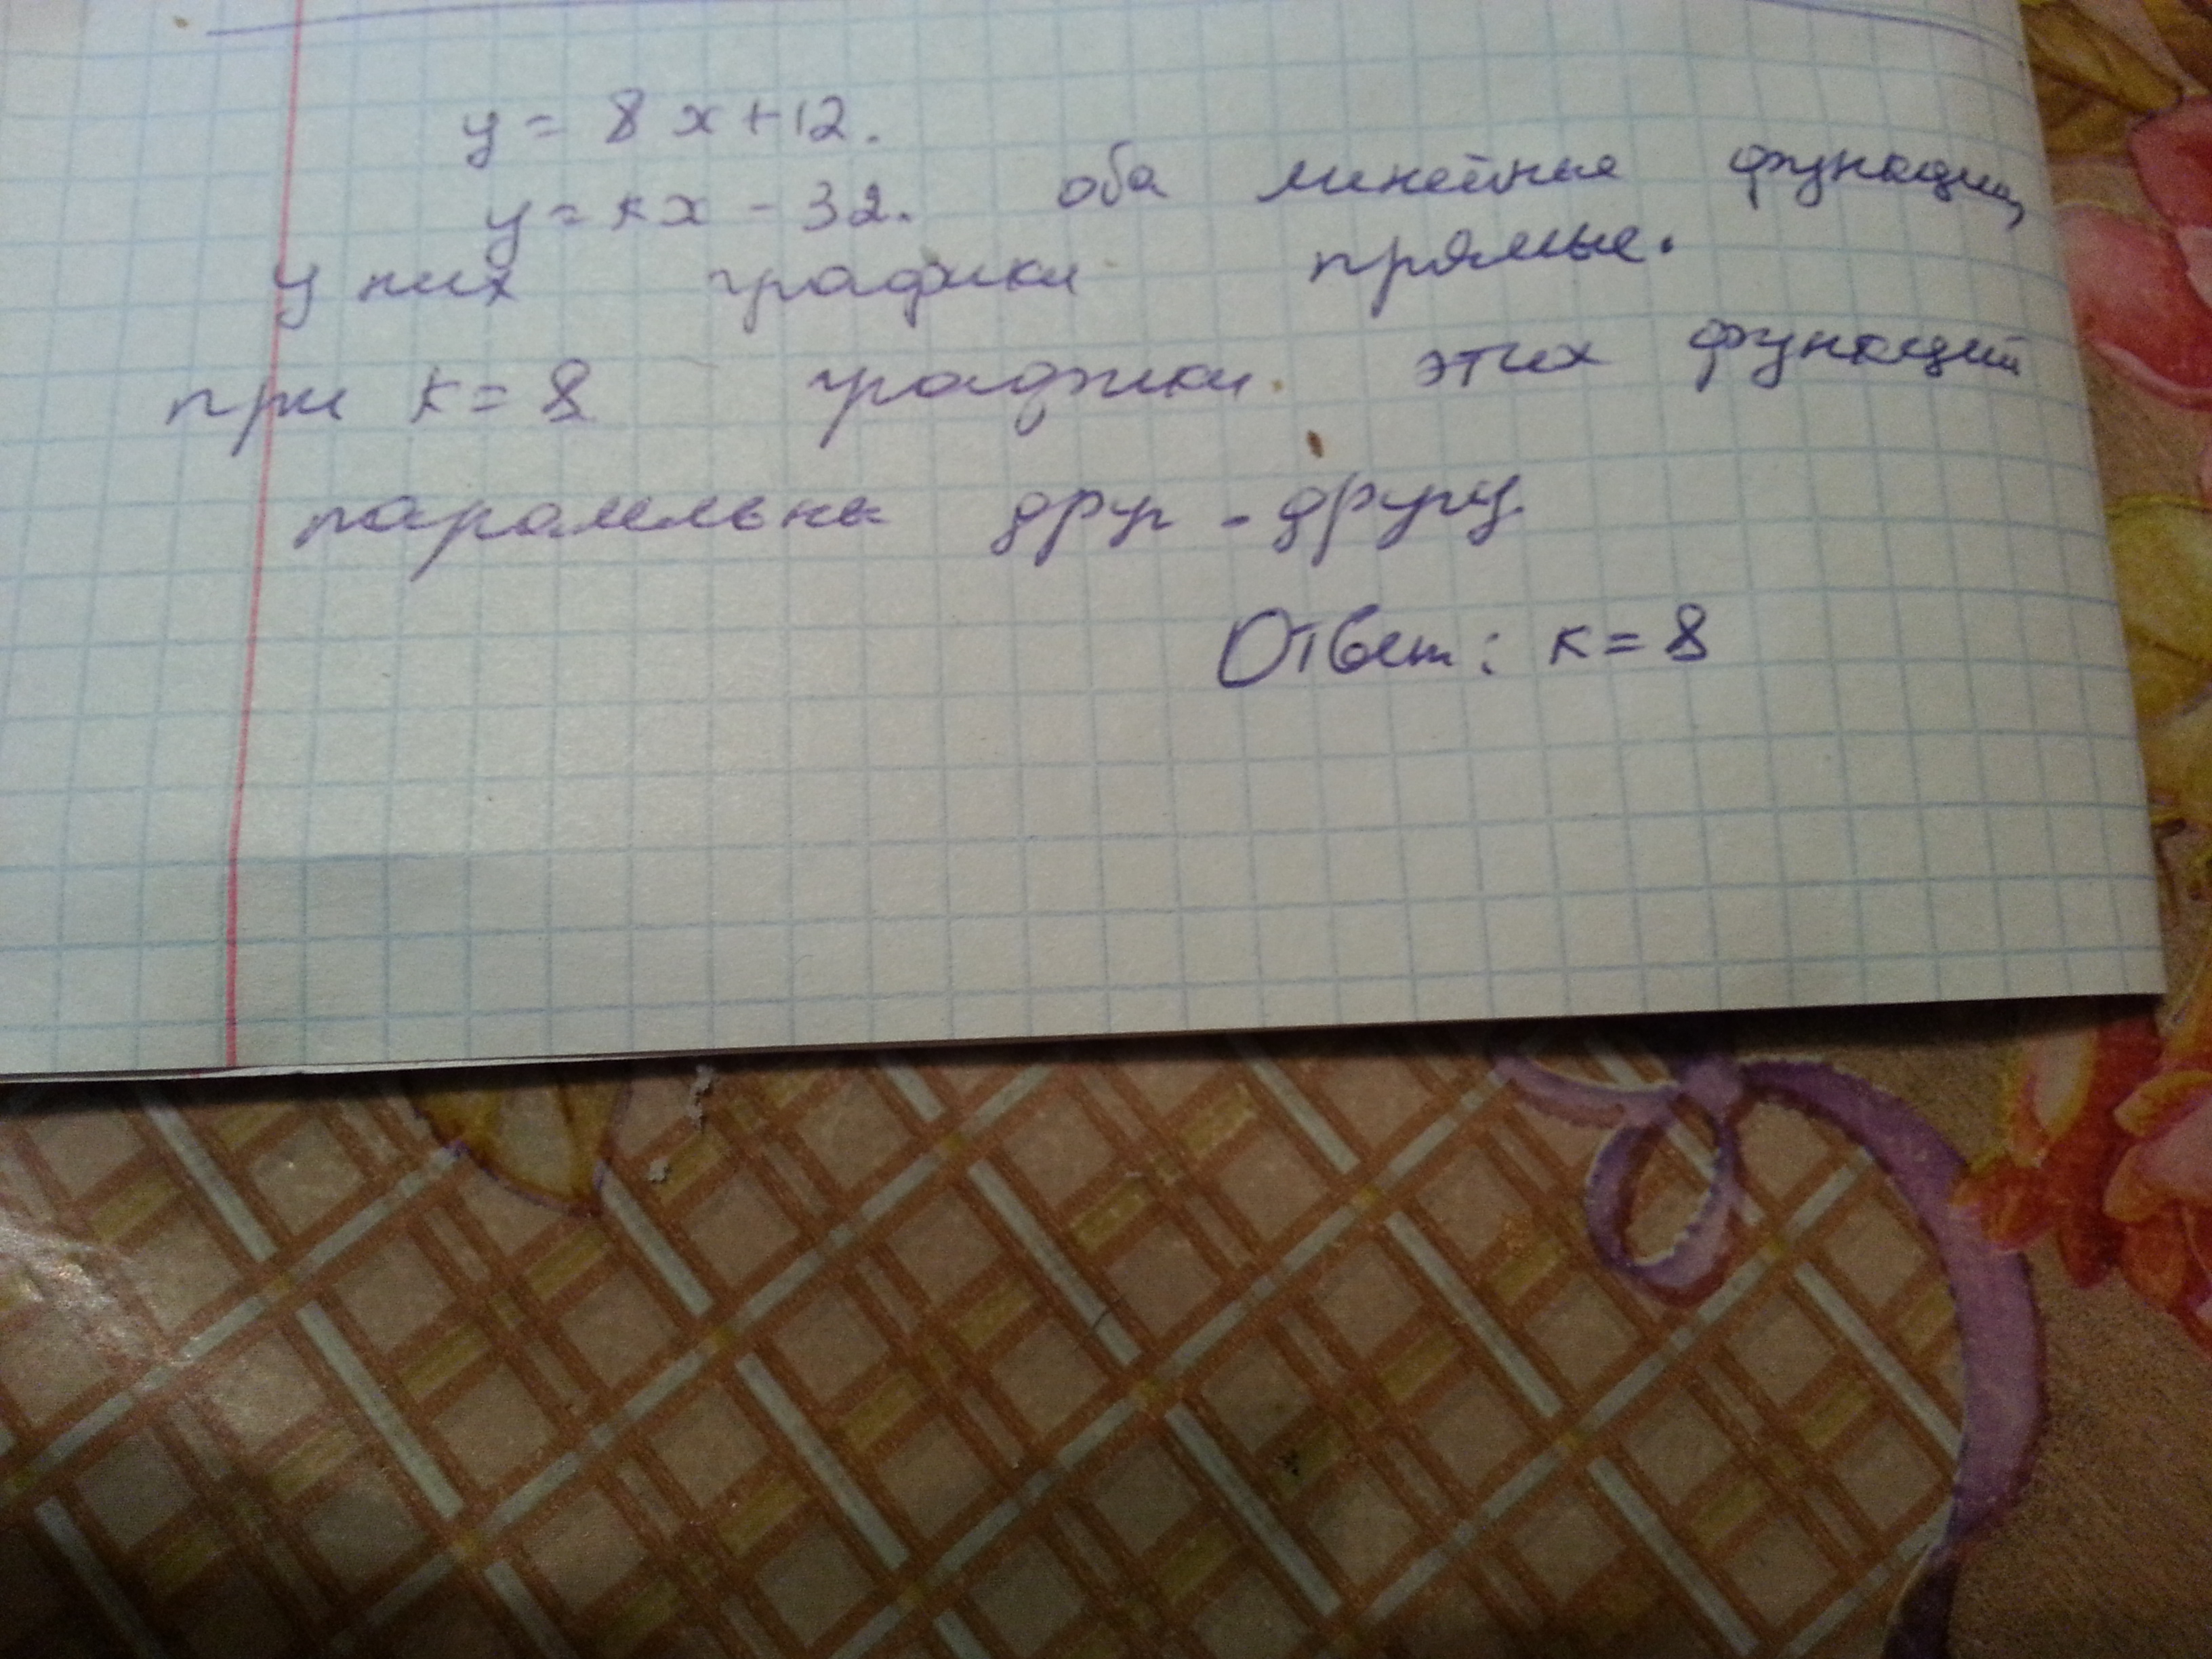 y = 8x+12.
y = kx - 32. оба линейные функции,
у них графики прямые.
при k = 8 графики этих функций
паралельны друг - другу.
Ответ: k = 8